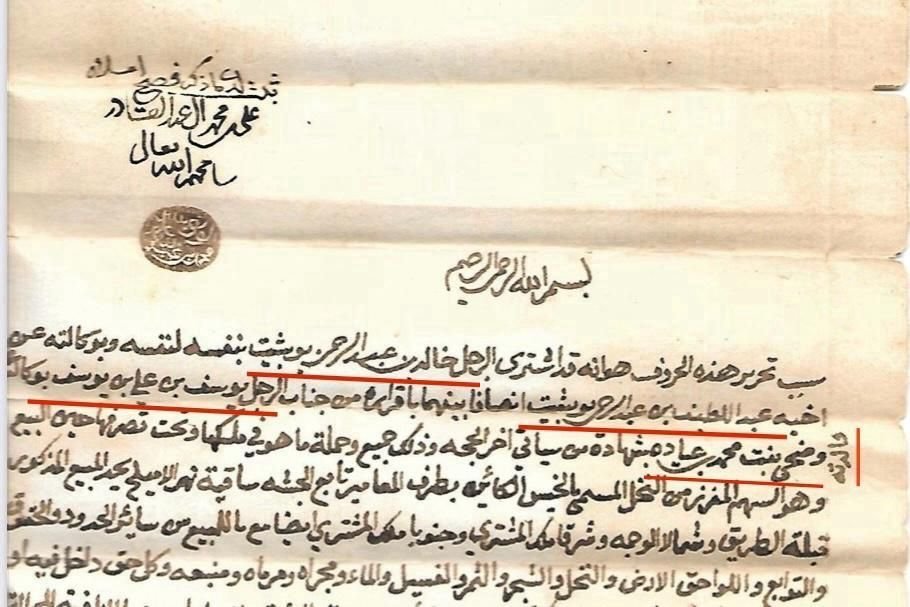 ثبت لدي ما ذكر فصح
علي بن محمد آل عبد القادر
سامحهم الله تعالى
بسم الله الرحمن الرحيم
سبب تحرير هذه الحروف هو انه قد اشترى الرجل خالد بن عبد الرحمن بوبشيت بنفسه لنفسه وبوكالته عن
اخيه عبد اللطيف بن عبد الرحمن بوبشيت انصافا بينهما باقراره من جناب الرجل يوسف بن علي بن يوسف بوكالة
والدته
وضحى بنت محمد بن عياده بشهادة من سيأتي اخر الحجه وذلك جميع وجملة ما هو في ملكها وتحت تصرفها حين البيع
وهو السهم المفرز من النخل المسمى بالخيس الكائن بطرف المعامير تابع الجشه ساقية نهر الاميلح يحد المبيع المذكور
قبلة الطريق وشمالا الوجه وشرقا ملك المشتري وجنوبا ملك المشتري ايضا مع ما للمبيع من سائر الحدود والحقوق
والتوابع واللواحق الارض والنخل والشجر والثمر والفسيل والماء ومجراه ومرماه ومنبعه وكل حق داخل فيه او